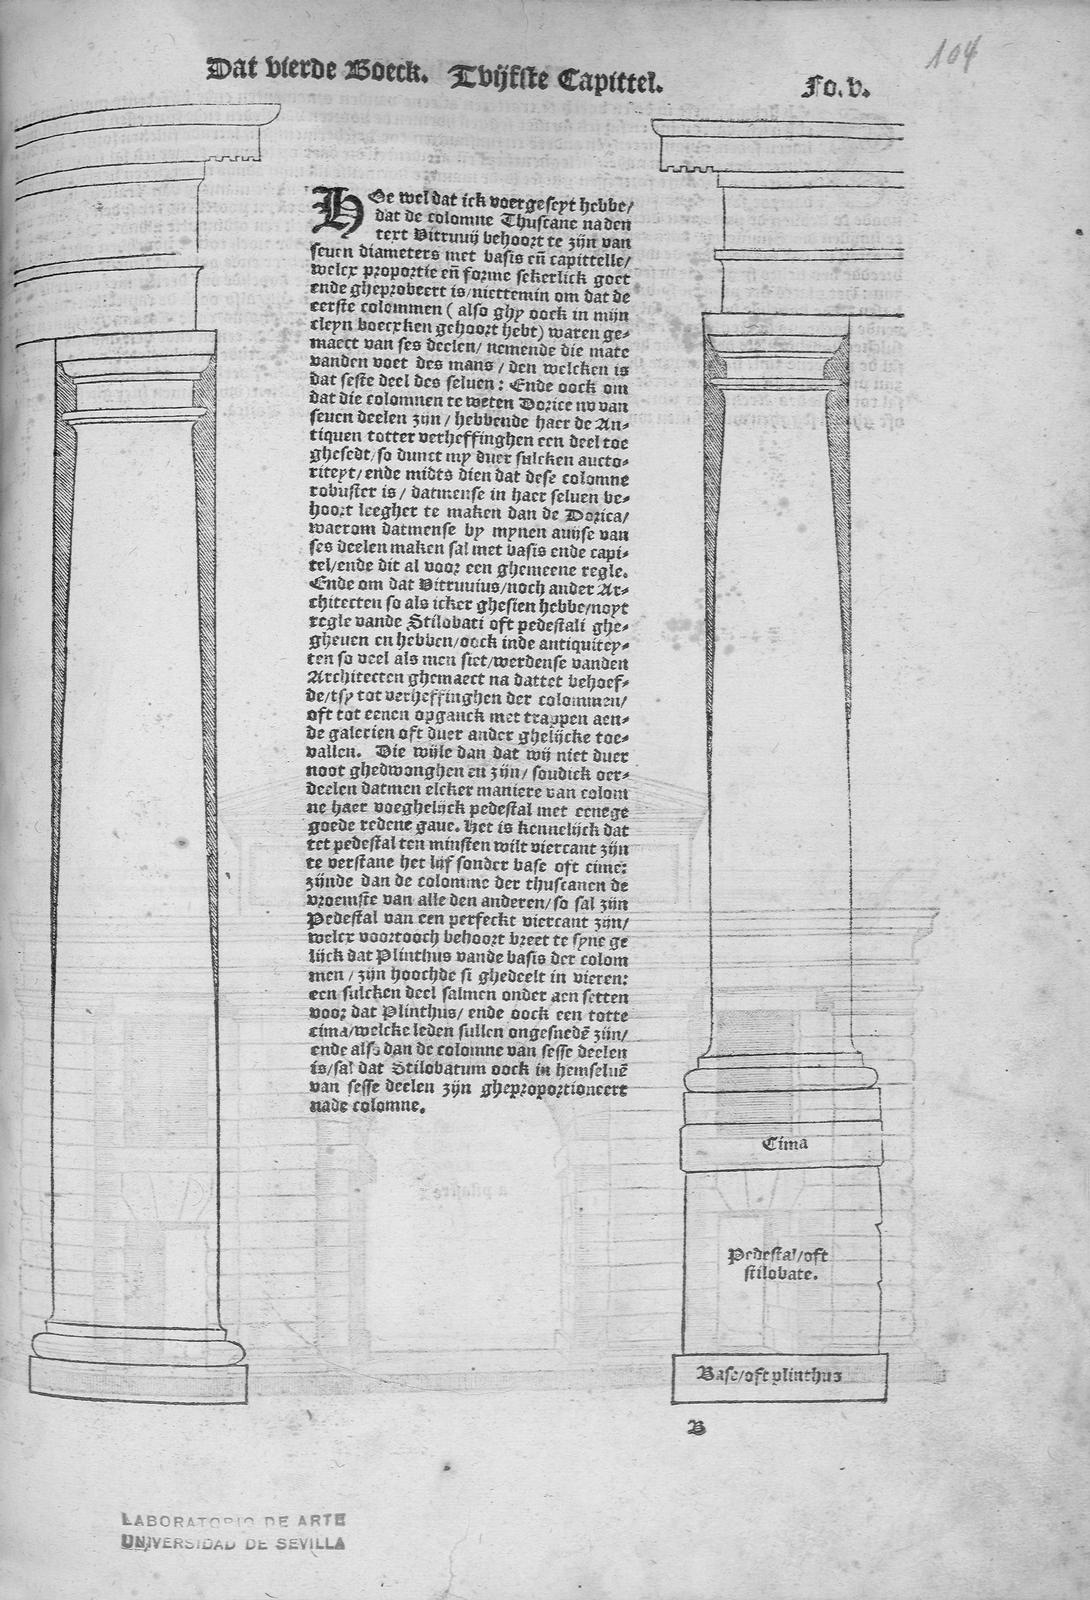 Dat vierde Boeck. Tvijfste Capittel. Fo. v.
104
HOe wel dat ick voergeseyt hebbe/
dat de colomne Thuscane na den
text Vitruuij behoort te zijn van
seuen diameters met basis eñ capittelle/
welcx proportie eñ forme sekerlick goet
ende gheprobeert is/niettemin om dat de
eerste colommen ( also ghy oock in mijn
cleyn boecxken gehoort hebt) waren ge-
maect van ses deelen/ nemende die mate
vanden voet des mans / den welcken is
dat seste deel des seluen : Ende oock om
dat die colomnen te weten Dorice nv van
seuen deelen zijn / hebbende haer de An-
tiquen totter verheffinghen een deel toe
ghesedt/so dunct my duer sulcken aucto-
riteyt/ende midts dien dat dese colomne
robuster is / datmense in haer seluen be-
hoort leegher te maken dan de Dorica/
waerom datmense by mynen auijse van
ses deelen maken sal met basis ende capi-
tel/ende dit al voor een ghemeene regle.
Ende om dat Vitruuius/noch ander Ar-
chitecten so als icker ghesien hebbe/noyt
regle vande Stilobati oft pedestali ghe-
gheuen en hebben/oock inde antiquitey-
ten so veel als men siet/werdense vanden
Architecten ghemaect na dattet behoef-
de/tsy tot verheffinghen der colommen/
oft tot eenen opganck met trappen aen-
de galerien oft duer ander ghelijcke toe-
vallen. Die wijle dan dat wij niet duer
noot ghedwonghen en zijn/ soudick oer-
deelen datmen elcker maniere van colom
ne haer voeghelijck pedestal met eenege
goede redene gaue. Het is kennelijck dat
tet pedestal ten minsten wilt viercant zijn
te verstane het lijf sonder base oft cime:
zijnde dan de colomme der thuscanen de
vroemste van alle den anderen/ so sal zijn
Pedestal van een perfeckt viercant zijn/
welcx voortooch behoort breet te syne ge
lijck dat Plinthus vande basis der colom
men / zijn hoochde si ghedeelt in vieren:
een sulcken deel salmen onder aen setten
voor dat Plinthus/ ende oock een totte
cima/welcke leden sullen ongesnedē zijn/
ende also dan de colomne van sesse deelen
is/sal dat Stilobatum oock in hemseluē
van sesse deelen zijn gheproportioneert
nade colomne.
Cima
Pedestal/oft
stilobate.
Base/oft plinthus
B
LABORATORIO DE ARTE
UNIVERSIDAD DE SEVILLA